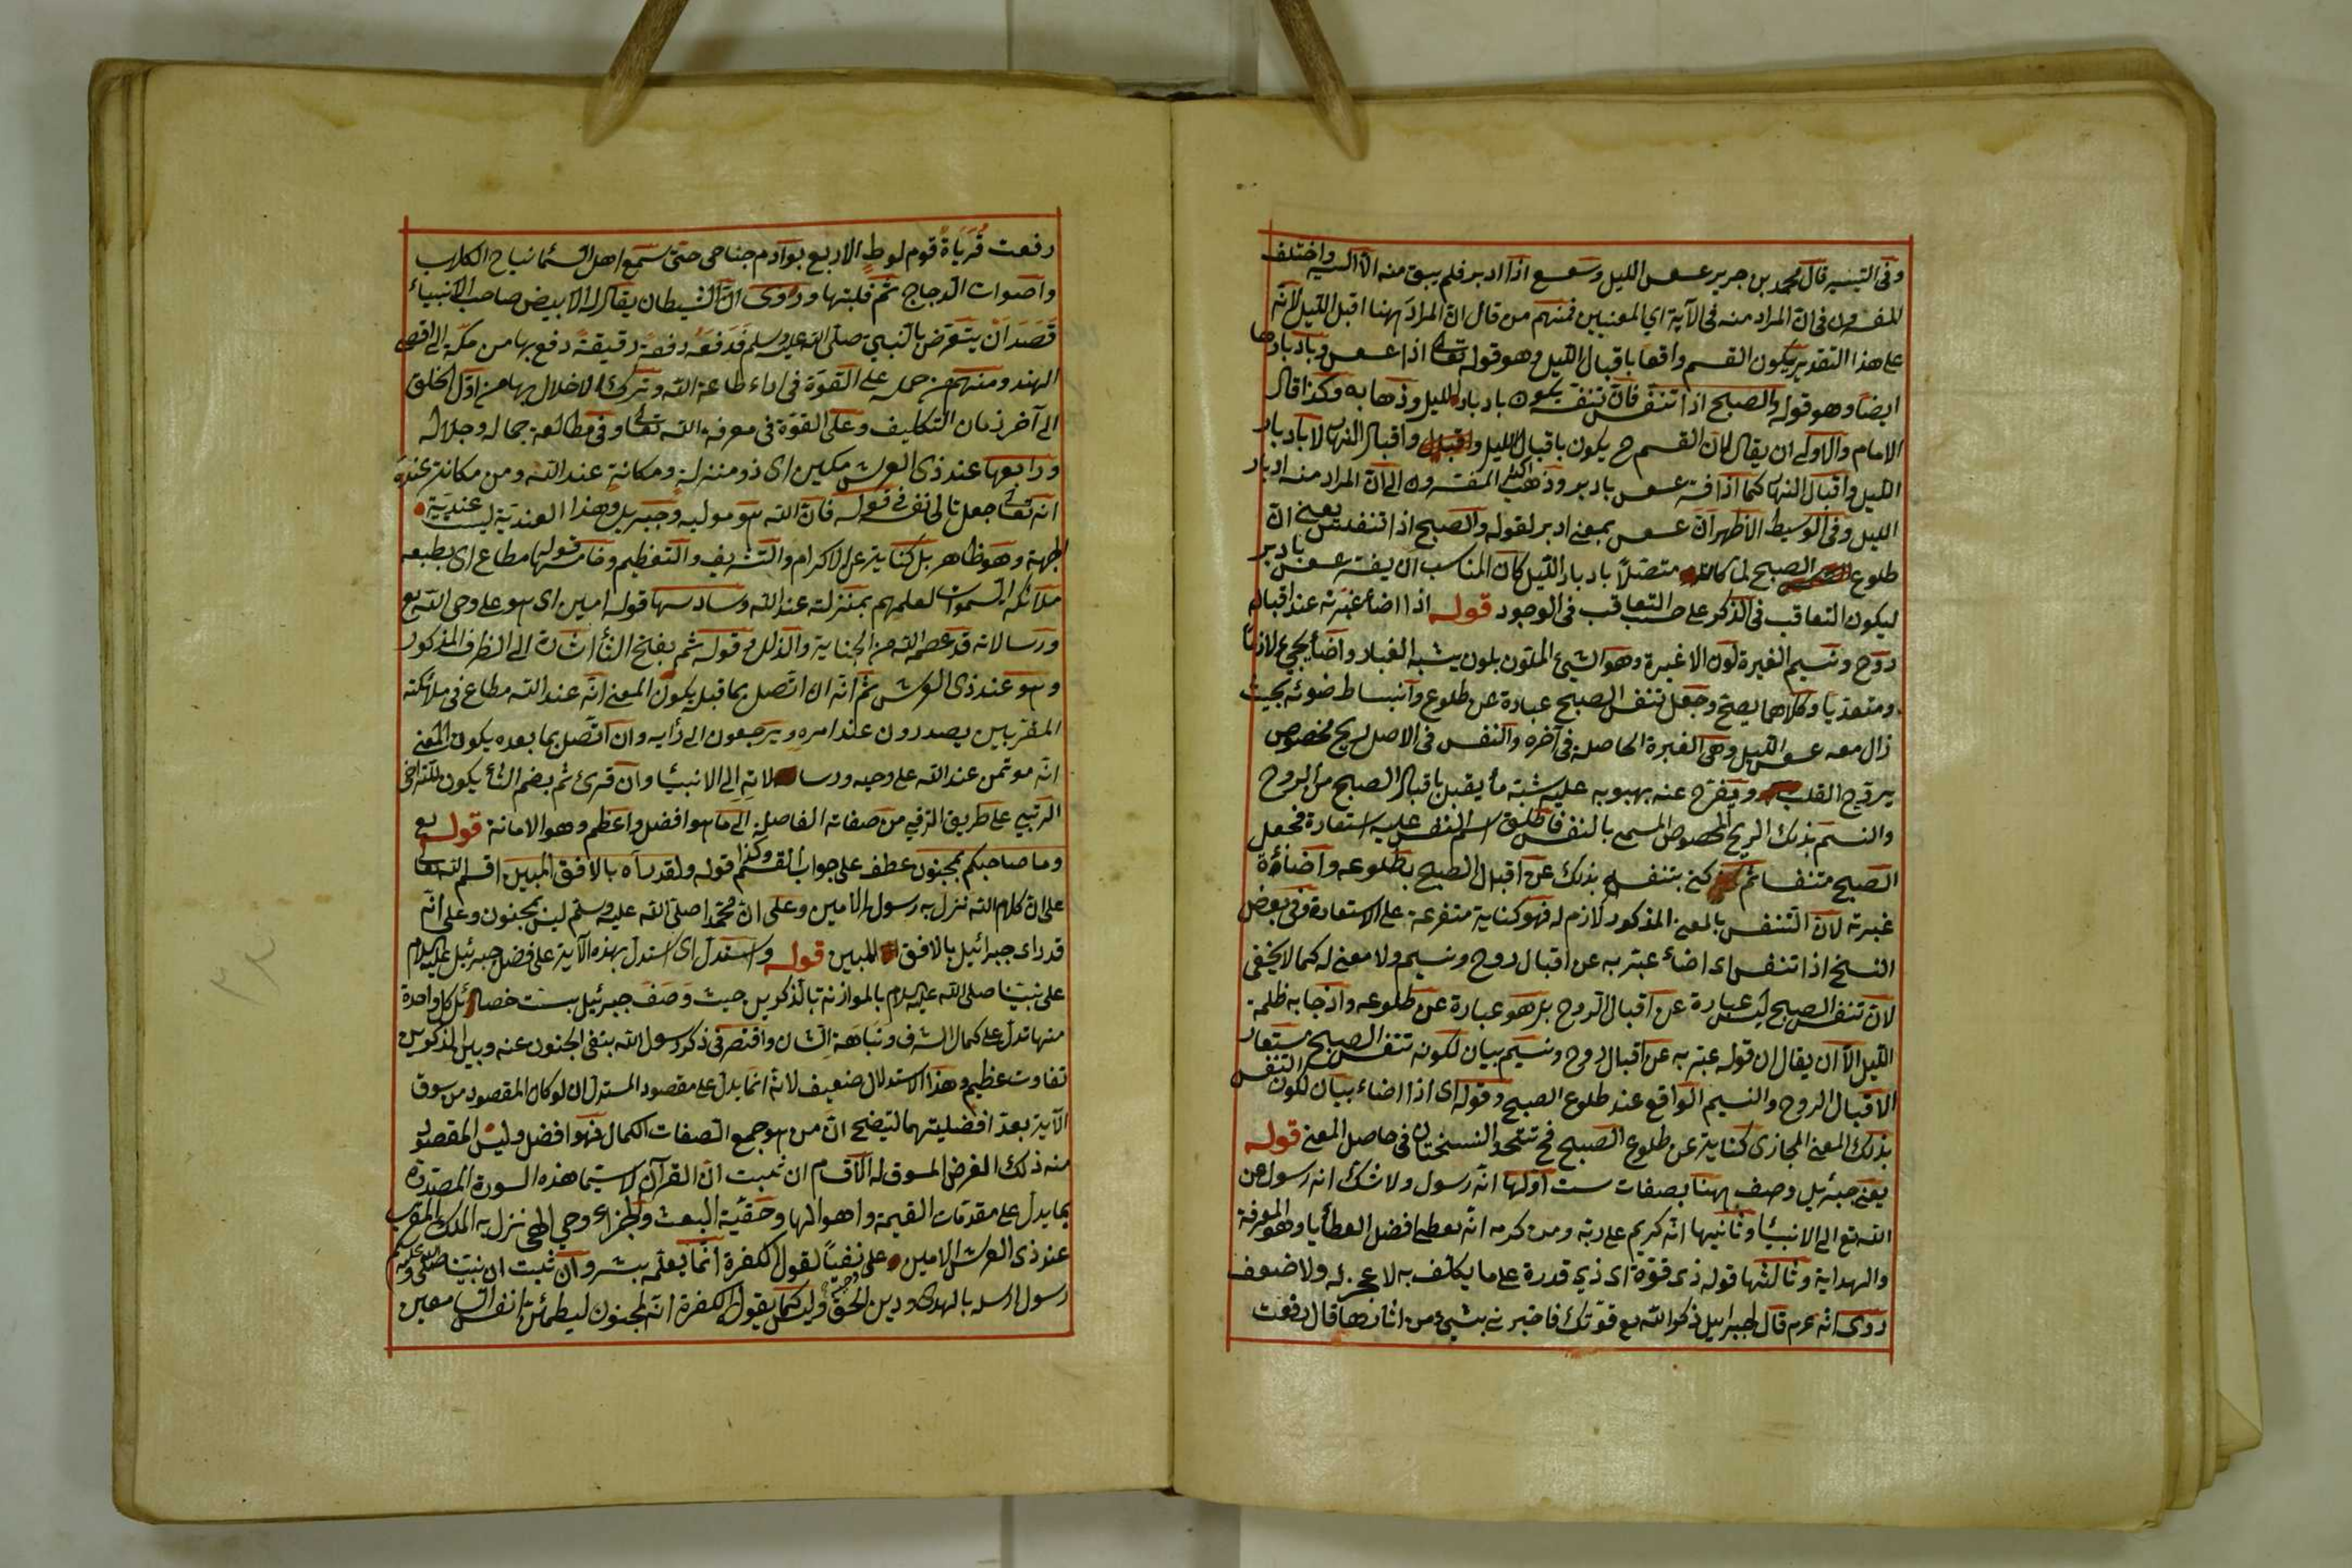 وفى التيسير قال محمد بن جرير عسعس الليل وسعسع اذا ادبر فلم يبق منه الا اليسير واختلف
المفسرون فى ان المراد منه فى الآية اي المعنيين فمنهم من قال ان المراد ههنا اقبل الليل لانه
على هذا التقدير يكون القسم واقعا باقبال الليل وهو قوله تعالى اذا عسعس وبادباره
ايضا وهو قوله والصبح اذا تنفس فان تنفسه يكون بادبار الليل وذهابه وكذا قال
الامام والاولى ان يقال لان القسم ح يكون باقبال الليل واقبال النهار لا بادبار
الليل واقبال النهار كما اذا فسر عسعس بادبر وذهب اكثر المفسرون الى ان المراد منه ادبار
الليل وفى الوسيط الاظهر ان عسعس بمعنى ادبر لقوله والصبح اذا تنفس يعنى ان
طلوع الصبح لما كان متصلا بادبار الليل كان المناسب ان يفسر عسعس بادبر
ليكون التعاقب فى الذكر على حسب التعاقب فى الوجود قوله اذا اضاء غبرته عند اقبال
روح ونسيم الغبرة لون الاغبرة وهو الشيئ الملون بلون يشبه الغبار واضاء يجيئ لازما
ومتعديا وكلاهما يصح وجعل تنفس الصبح عبارة عن طلوع وانبساط ضوئه بحيث
زال معه عسعس الليل وهى الغبرة الحاصلة فى آخره والنفس فى الاصل لريح مخصوص
يروح القلب ويفرح عنه بهبوبه عليه شبه ما يقبل باقبال الصبح من الروح
والنسيم بذلك الريح المخصوص المسمى بالنفس فاطلق اسم النفس عليه استعارة فجعل
الصبح متنفسا ثم كنى بتنفسه بذلك عن اقبال الصبح بطلوعه واضاءة
غبرته لان التنفس بالمعنى المذكور لازم له فهو كناية متفرعة على الاستعارة وفى بعض
النسخ اذا تنفس اى اضاء عبر به عن اقبال روح ونسيم ولا معنى له كما لا يخفى
لان تنفس الصبح ليس عبارة عن اقبال الروح بل هو عبارة عن طلوعه وانجابه ظلمة
الليل الا ان يقال ان قوله عبر به عن اقبال روح ونسيم بيان لكونه تنفس الصبح مستعار
الاقبال الروح والنسيم الواقع عند طلوع الصبح وقوله اى اذا اضاء بيان لكون التنفس
بذلك المعنى المجازى كناية عن طلوع الصبح فح تتحد النسختان فى حاصل المعنى قوله
يعنى جبرئيل وصف ههنا بصفات ست اولها انه رسول ولا شك انه رسول من
الله تع الى الانبياء وثانيها انه كريم على ربه ومن كرمه انه يعطى افضل العطايا وهو المعرفة
والهداية وثالثها قوله ذى قوة اى ذي قدرة على ما يكلف به لا عجز له ولا ضعف
روى انه عم قال لجبرائيل ذكر الله تع قوتك فاخبرنى بشيئ من اثارها قال رفعت
رفعت قريات قوم لوط الاربع بوادم جناحى حتى سمع اهل السماء نباح الكلاب
واصوات الدجاج ثم قلبتها وروى ان الشيطان يقال له الابيض صاحب الانبياء
قصد ان يتعرض بالنبى صلى الله عليه وسلم فدفعه دفعة رقيقة دفع بها من مكة الى اقصى
الهند ومنهم من حمله على القوة فى اداء طاعة الله وترك الاخلال بها من اول الخلق
الى آخر زمان التكليف وعلى القوة فى معرفة الله تعالى وفى مطالعة جماله وجلاله
ورابعها عند ذى العرش مكين اى ذو منزلة ومكانة عند الله ومن مكانته عنده
انه تعالى جعل تالى نفسه فى قوله فان الله هو موليه وجبريل وهذا العندية ليست عندية
الجهة وهو ظاهر بل كناية عن الاكرام والتشريف والتعظيم وخامسها قوله مطاع اى يطيعه
ملائكة السموات لعلمهم بمنزلته عند الله وسادسها قوله امين اى هو على وحى الله تع
ورسالاته قد عصمه الله من الجناية والذلل وقوله ثم بفتح الثاء اشارة الى الظرف المذكور
وهو عند ذى العرش ثم انه ان اتصل بما قبله يكون المعنى انه عند الله مطاع فى ملائكته
المقربين يصدرون عند امره ويرجعون الى رأيه وان اتصل بما بعده يكون المعنى
انه موتمن عند الله على وحيه ورسالاته الى الانبياء وان قرئ ثم بضم الثاء يكون للتراخى
الرتبي على طريق الترقى من صفاته الفاضلة الى ما هو افضل واعظم وهو الامانة قوله تع
وما صاحبكم بمجنون عطف على جواب القسم وكذا قوله ولقد رآه بالافق المبين اقسم الله تعالى
على ان كلام الله نزل به رسول الامين وعلى ان محمدا صلى الله عليه وسلم ليس بمجنون وعلى انه
قد راى جبرائيل بالافق المبين قوله واستدل اى استدل بهذه الآية على فضل جبرئيل عليه السلام
على نبينا صلى الله عليه السلام بالموازنة بالذكرين حيث وصف جبرئيل بست خصائل كل واحدة
منها تدل على كمال الشرف ونباهة الشان واقتصر فى ذكر رسول الله بنفى الجنون عنه وبين المذكورين
تفاوت عظيم وهذا الاستدلال ضعيف لانه انما يدل على مقصود المستدل ان لو كان المقصود من سوق
الآية بعد افضليتهما ليتضح ان من هو جمع الصفات الكمال فهو افضل وليس المقصود
منه ذلك الغرض المسوق له الاقسام ان ثبت ان القرآن لا سيما هذه السورة المصدرة
بما يدل على مقدمات القيمة واهوالها وحقية البعث والجزاء وحي الهى نزل به الملك المقرب
عند ذى العرش الامين على نفيا لقول الكفرة انما يعلمه بشر وان ثبت ان نبينا صلى الله عليه وسلم
رسول ارسله بالهدى ودين الحق وليس كما يقول الكفرة انه لمجنون ليطمئن انفس معين